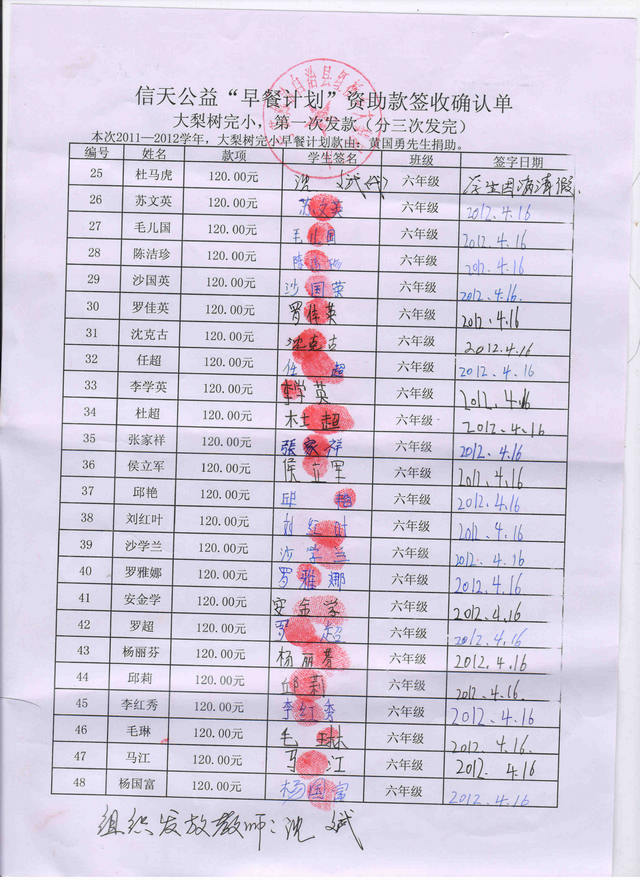 自治县红
信天公益“早餐计划”资助款签收确认单
大梨树完小，第一次发款（分三次发完）
本次2011—2012学年，大梨树完小早餐计划款由：黄国勇先生捐助。
编号 姓名 款项 学生签名 班级 签字日期
25 杜马虎 120.00元 沈斌(代) 六年级 学生因病请假.
26 苏文英 120.00元 苏文英 六年级 2012.4.16
27 毛儿国 120.00元 毛儿国 六年级 2012.4.16
28 陈洁珍 120.00元 陈洁珍 六年级 2012.4.16
29 沙国英 120.00元 沙国英 六年级 2012.4.16.
30 罗佳英 120.00元 罗佳英 六年级 2012.4.16
31 沈克古 120.00元 沈克古 六年级 2012.4.16
32 任超 120.00元 任超 六年级 2012.4.16
33 李学英 120.00元 李学英 六年级 2012.4.16
34 杜超 120.00元 杜超 六年级 2012.4.16
35 张家祥 120.00元 張家祥 六年级 2012.4.16
36 侯立军 120.00元 侯立军 六年级 2012.4.16
37 邱艳 120.00元 邱艳 六年级 2012.4.16
38 刘红叶 120.00元 刘红叶 六年级 2012.4.16
39 沙学兰 120.00元 沙学兰 六年级 2012.4.16
40 罗雅娜 120.00元 罗雅娜 六年级 2012.4.16
41 安金学 120.00元 安金学 六年级 2012.4.16
42 罗超 120.00元 罗超 六年级 2012.4.16
43 杨丽芬 120.00元 杨丽芬 六年级 2012.4.16
44 邱莉 120.00元 邱莉 六年级 2012.4.16
45 李红秀 120.00元 李红秀 六年级 2012.4.16
46 毛琳 120.00元 毛琳 六年级 2012.4.16.
47 马江 120.00元 马江 六年级 2012.4.16
48 杨国富 120.00元 杨国富 六年级 2012.4.16
组织发放教师：沈斌